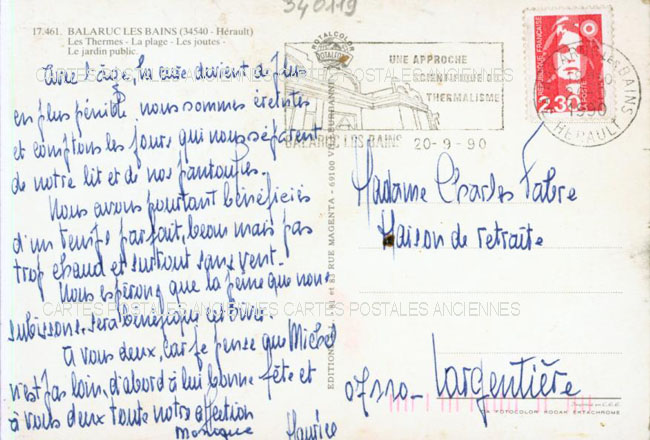 340119
17.461. BALARUC LES BAINS (34540 - Hérault)
Les Thermes - La plage - Les joutes -
Le jardin public.
Avec l'âge, la cure devient de plus
en plus pénible nous sommes éreintés
et comptons les jours qui nous séparent
de notre lit et de nos pantoufles.
Nous avons pourtant bénéficiés
d'un temps parfait, beau mais pas
trop chaud et surtout sans vent.
Nous espérons que la peine que nous
subissons, sera bénéfique cet hiver.
à vous deux, car je pense que Michel
n'est pas loin, d'abord à lui bonne fête et
à vous deux toute notre affection
Monique Maurice
ROTALCOLOR
UNE APPROCHE
SCIENTIFIQUE DU
THERMALISME
BALARUC LES BAINS 20-9-90
RÉPUBLIQUE FRANÇAISE
2.30
LES BAINS
1990
HÉRAULT
EDITION 81 et 83 RUE MAGENTA - 69100 VILLEURBANNE
Madame Charles Fabre
Maison de retraite
07110 - Largentière
PHOTOCOLOR KODAK EKTACHROME
CARTES POSTALES ANCIENNES CARTES POSTALES ANCIENNES
CARTES POSTALES ANCIENNES CARTES POSTALES ANCIENNES